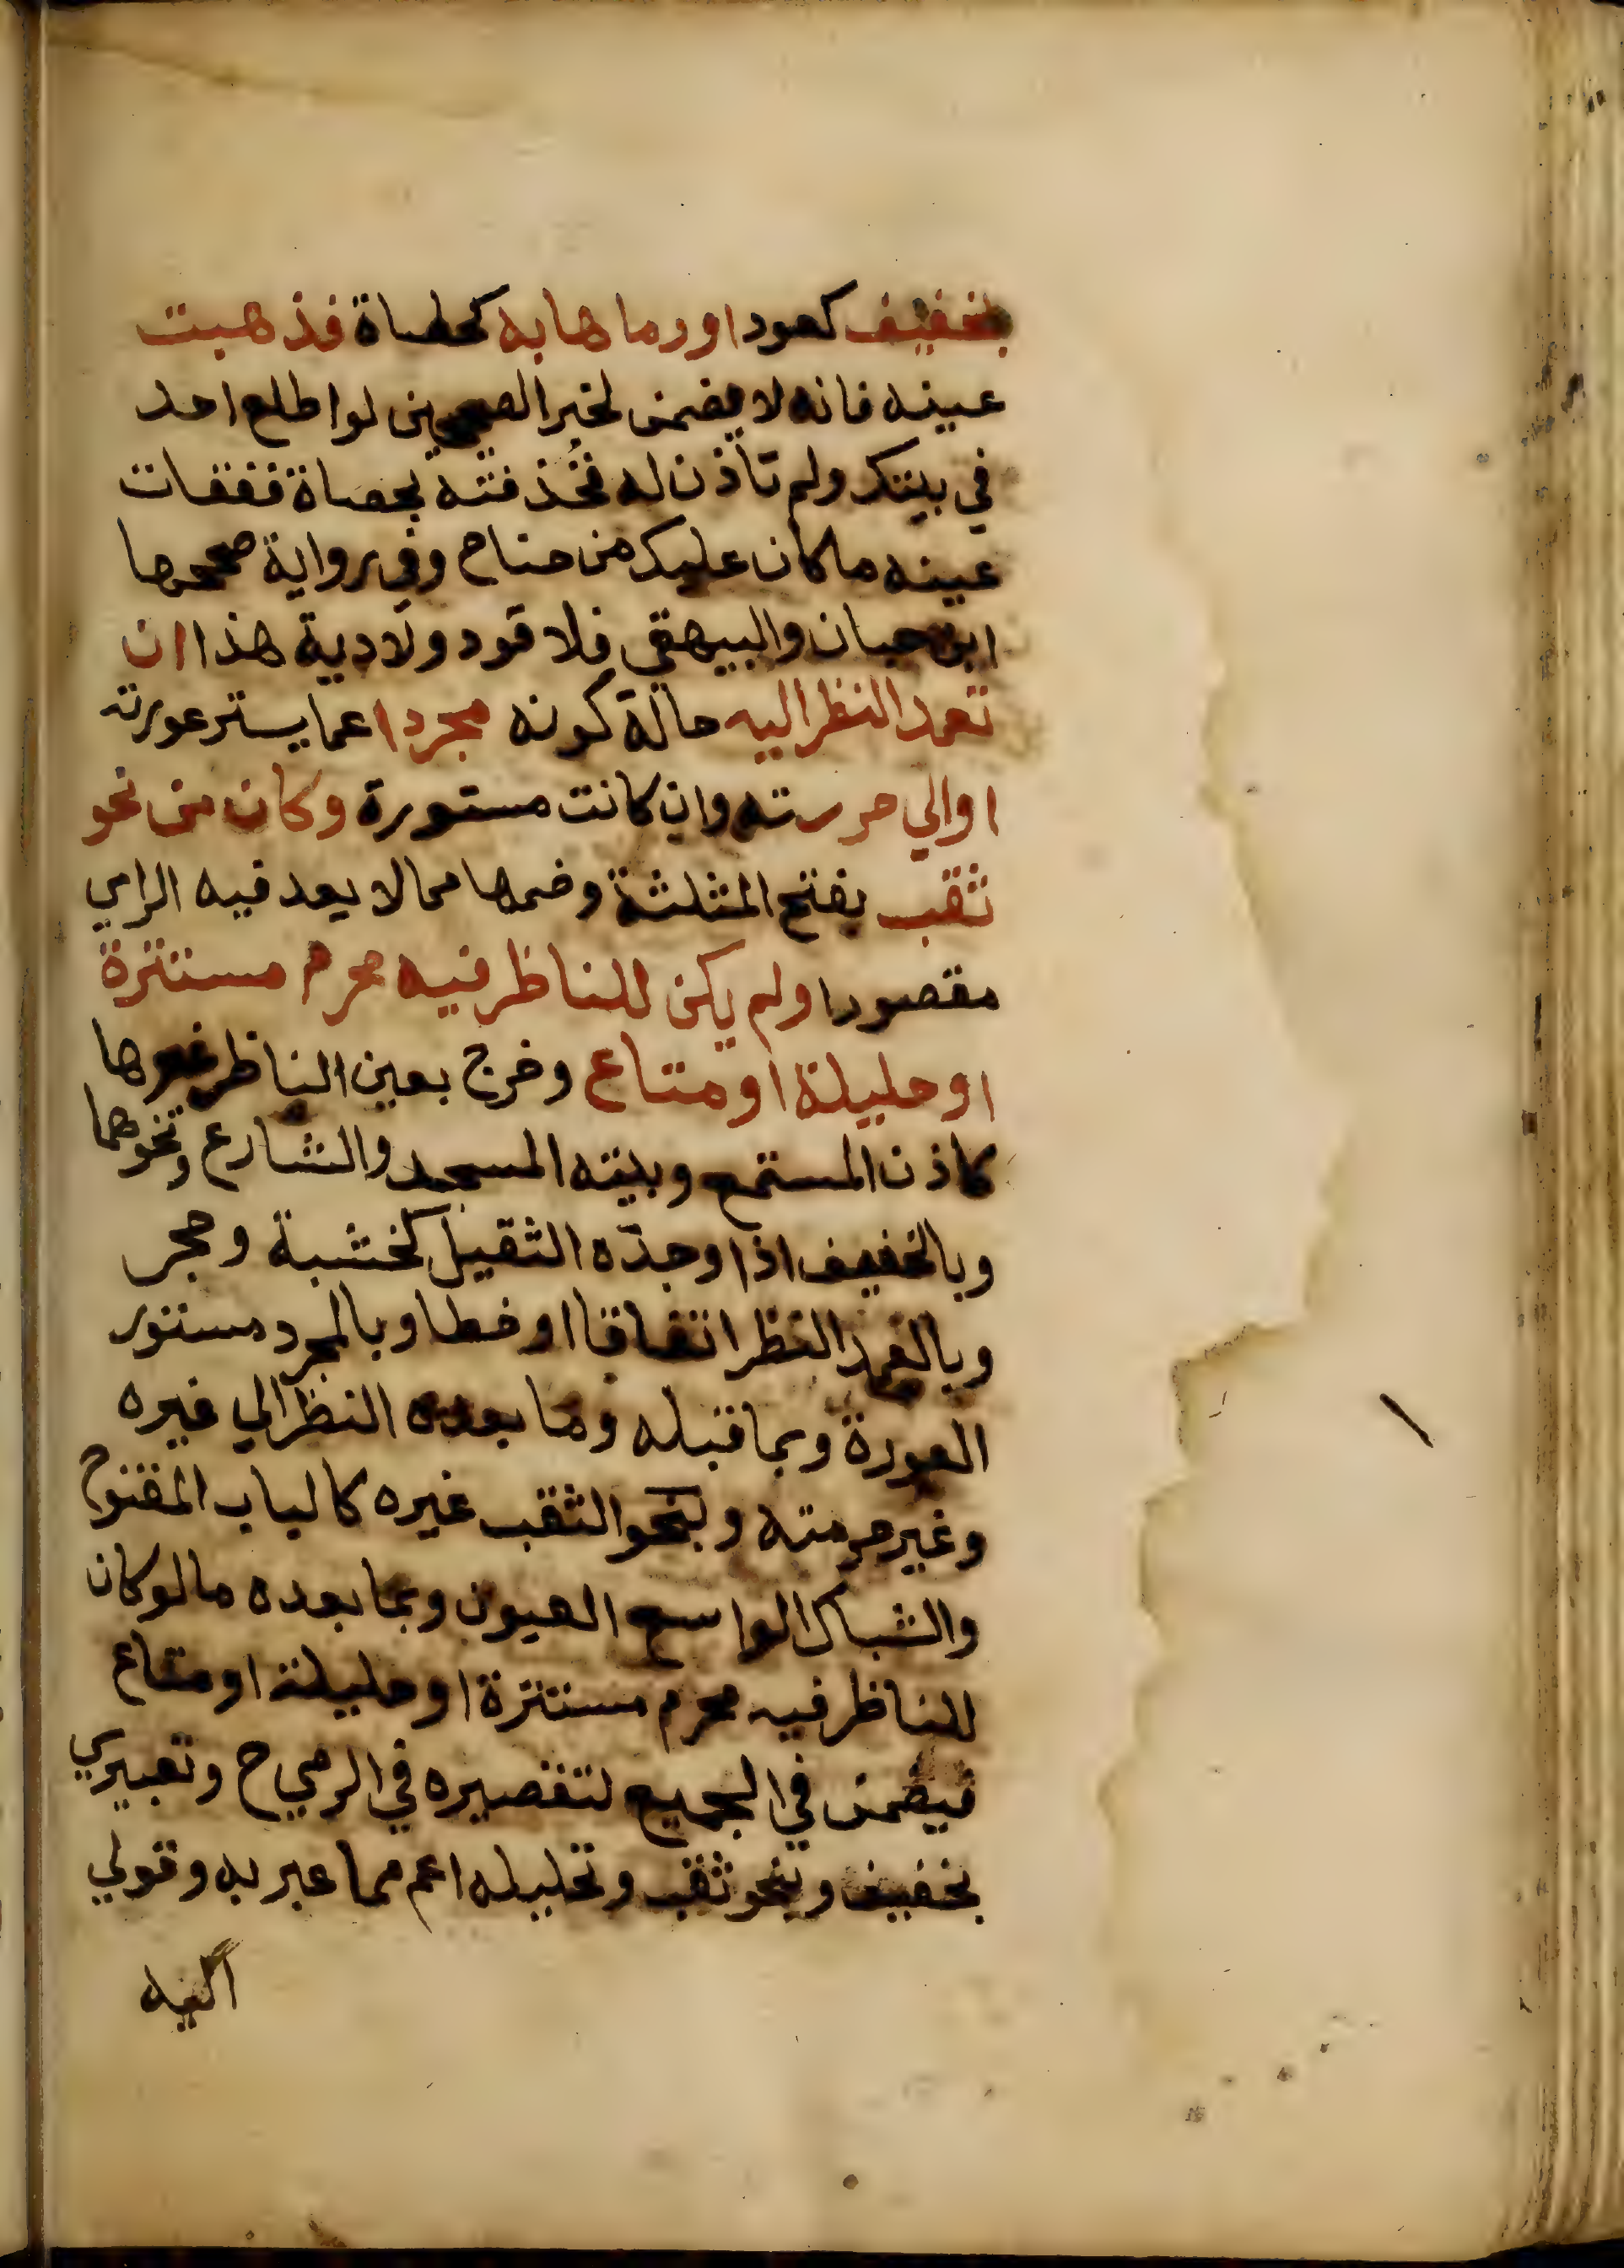 بخفيف كعود او رماها به كحصاة فذهبت
عينه فانه لا يضمن لخبر الصحيحين لو اطلع احد
في بيتك ولم تأذن له فخذفته بحصاة ففقات
عينه ما كان عليك من جناح وفي رواية صححها
ابن حبان والبيهقي فلا قود ولا دية هذا ان
تعمد النظر اليه حالة كونه مجردا عما يستر عورته
او الي حرمته وان كانت مستورة وكان من نحو
ثقب بفتح المثلثة وضمها مما لا يعد فيه الرامي
مقصرا ولم يكن للناظر فيه محرم مستترة
او حليلة او متاع وخرج بعين الناظر غيرها
كاذن المستمع وبيته المسجد والشارع ونحوهما
وبالخفيف اذا وجده الثقيل كخشبة وحجر
وبالعمد النظر اتفاقا او خطا وبالمجرد مستور
العورة وبما قبله وما بعده النظر الي غيره
وغير حرمته وبنحو الثقب غيره كالباب المفتوح
والشباك الواسع العيون وبما بعده ما لو كان
للناظر فيه محرم مستترة او حليلة او متاع
فيضمن في الجميع لتقصيره في الرمي ح وتعبيري
بخفيف وبنحو ثقب وتحليله اعم مما عبر به وقولي
اليه